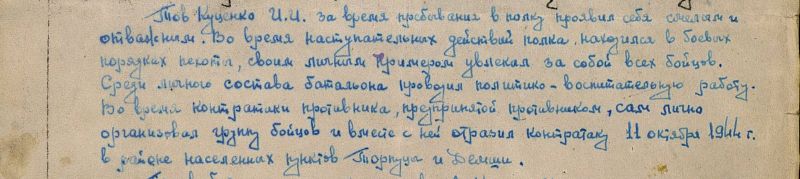 Тов Куценко И.И. за время пребывания в полку проявил себя смелым и
отважным. Во время наступательных действий полка, находился в боевых
порядках пехоты, своим личным примером увлекал за собой всех бойцов.
Среди личного состава батальона проводил политико-воспитательную работу.
Во время контратаки противника, предпринятой противником, сам лично
организовал группу бойцов и вместе с ней отразил контратаку 11 октября 1944 г.
в районе населенных пунктов Торпуцы и Демши.